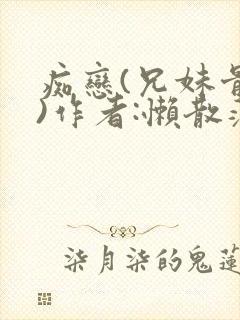 痴戀(兄妹骨
)作者:懶散
柒月柒的鬼蓮